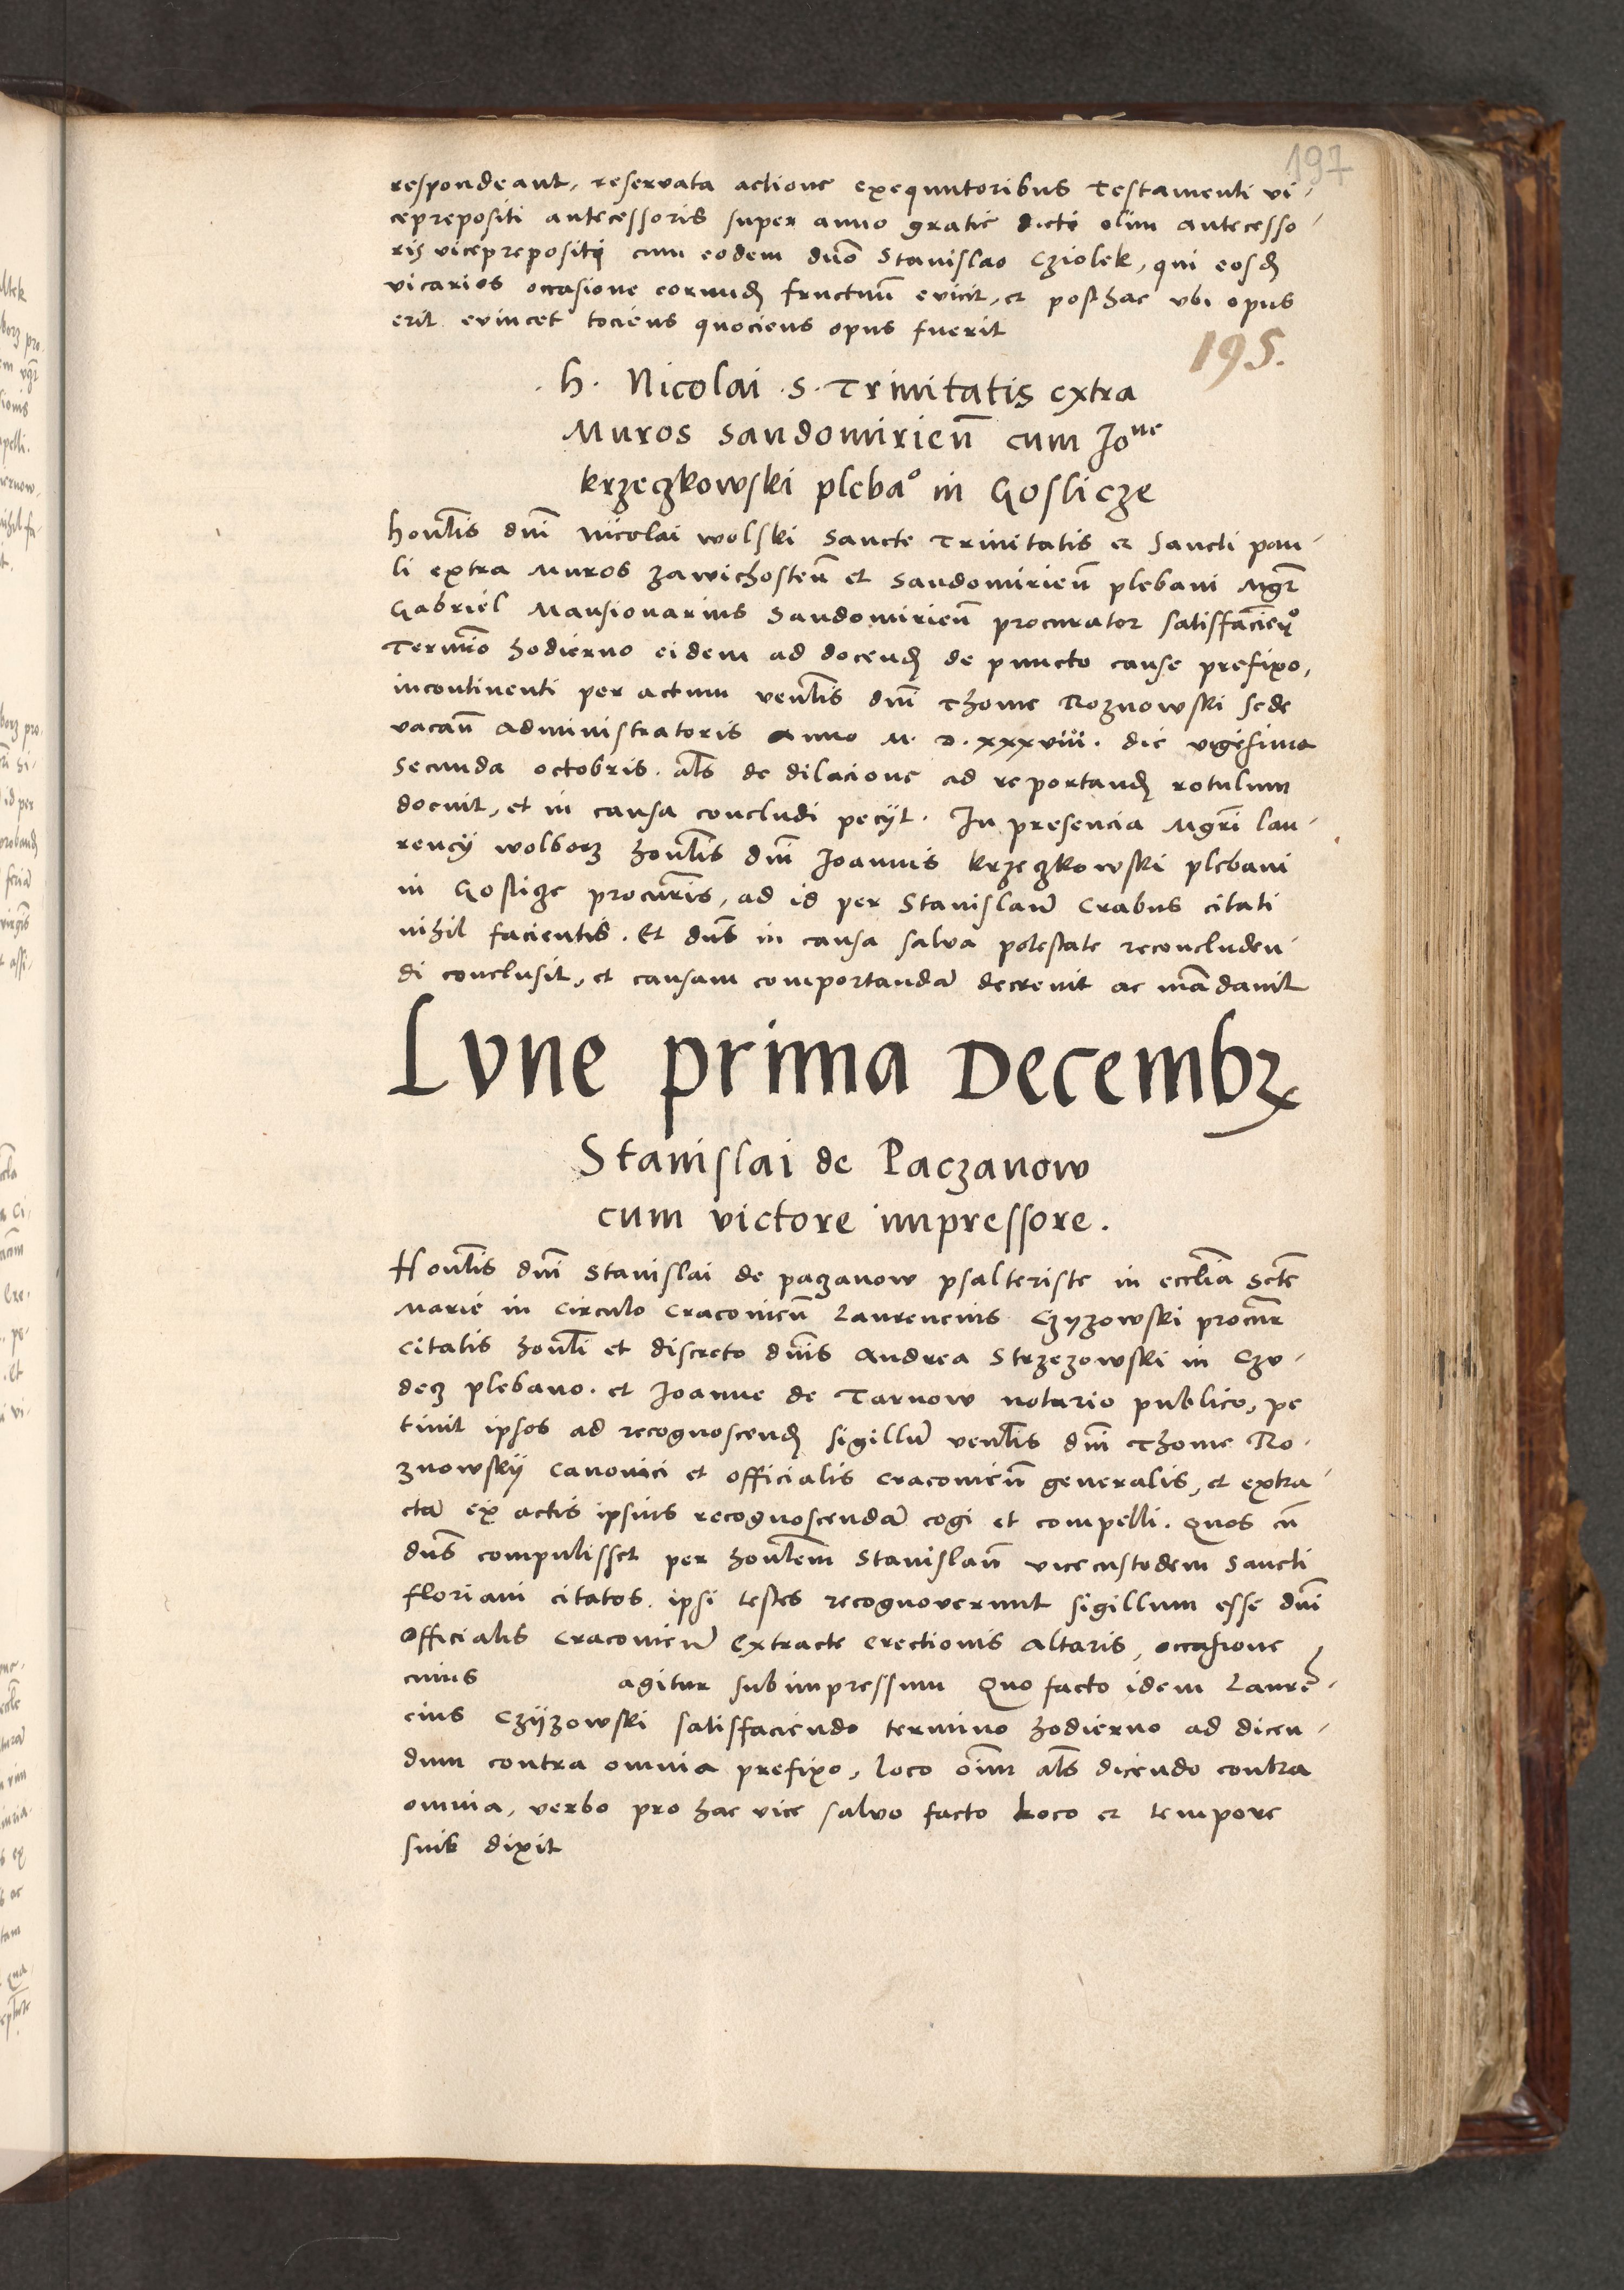 197
respondeant, reservata actione exequutoribus Testamenti vi-
ceprepositi antecessoris super anno gratie dicti olim antecesso-
ris viceprepositi cum eodem dno Stanislao Cziolek, qui eosd
vicarios occasione eorund fructuum evicit, et posthac vbi opus
erit evincet tociens quociens opus fuerit
195.
. h. Nicolai .s. Trinitatis extra
Muros Sandomirien cum Jo ne
krzeczkowski pleba° in Goslicze
honlis dni Nicolai wolski Sancte Trinitatis et Sancti pau-
li extra Muros zawichosten et Sandomirien plebani Mgr
Gabriel Mansionarius Sandomirien procurator satisfacien°
Termino hodierno eidem ad docend de puncto cause prefixo,
incontinenti per actum venlis dni Thome Roznowski sede
vacan Administratoris Anno M. D. xxxviii. die vigesima
secunda octobris. als de dilacione ad reportand rotulum
docuit, et in causa concludi peciit. In presencia Mgri lau-
rencij wolborz honlis dni Joannis krzeczkowski plebani
in Goslicze procuris, ad id per Stanislau Crabus citati
nihil facientis. Et dns in causa salva potestate reconcluden-
di conclusit, et causam comportanda decrevit ac madavit
Lvne prima Decembr
Stanislai de Paczanow
cum victore impressore.
Honlis dni Stanislai de paczanow psalteriste in ecclia Scte
Marie in Circulo Cracovien Laurencius Czyzowski procur
citatis honli et discreto dnis Andrea Strzezowski in Czu-
decz plebano. et Joanne de Tarnow notario publico, pe
tivit ipsos ad recognoscend sigillu venlis dni Thome Ro-
znowskij Canonici et officialis Cracovien generalis, et extra-
cta ex actis ipsius recognoscenda cogi et compelli. Quos cu
dns compulisset per honlem Stanislau vicecustodem Sancti
floriani citatos. ipsi testes recognoverunt sigillum esse dni
Officialis Cracovien Extracte Erectionis Altaris, occasione
cuius agitur subimpressum Quo facto idem Laure-
cius Czijzowski satisfaciendo termino hodierno ad dicen-
dum contra omnia prefixo, loco oim als dicendo contra
omnia, verbo pro hac vice salvo facto loco et tempore
suis dixit